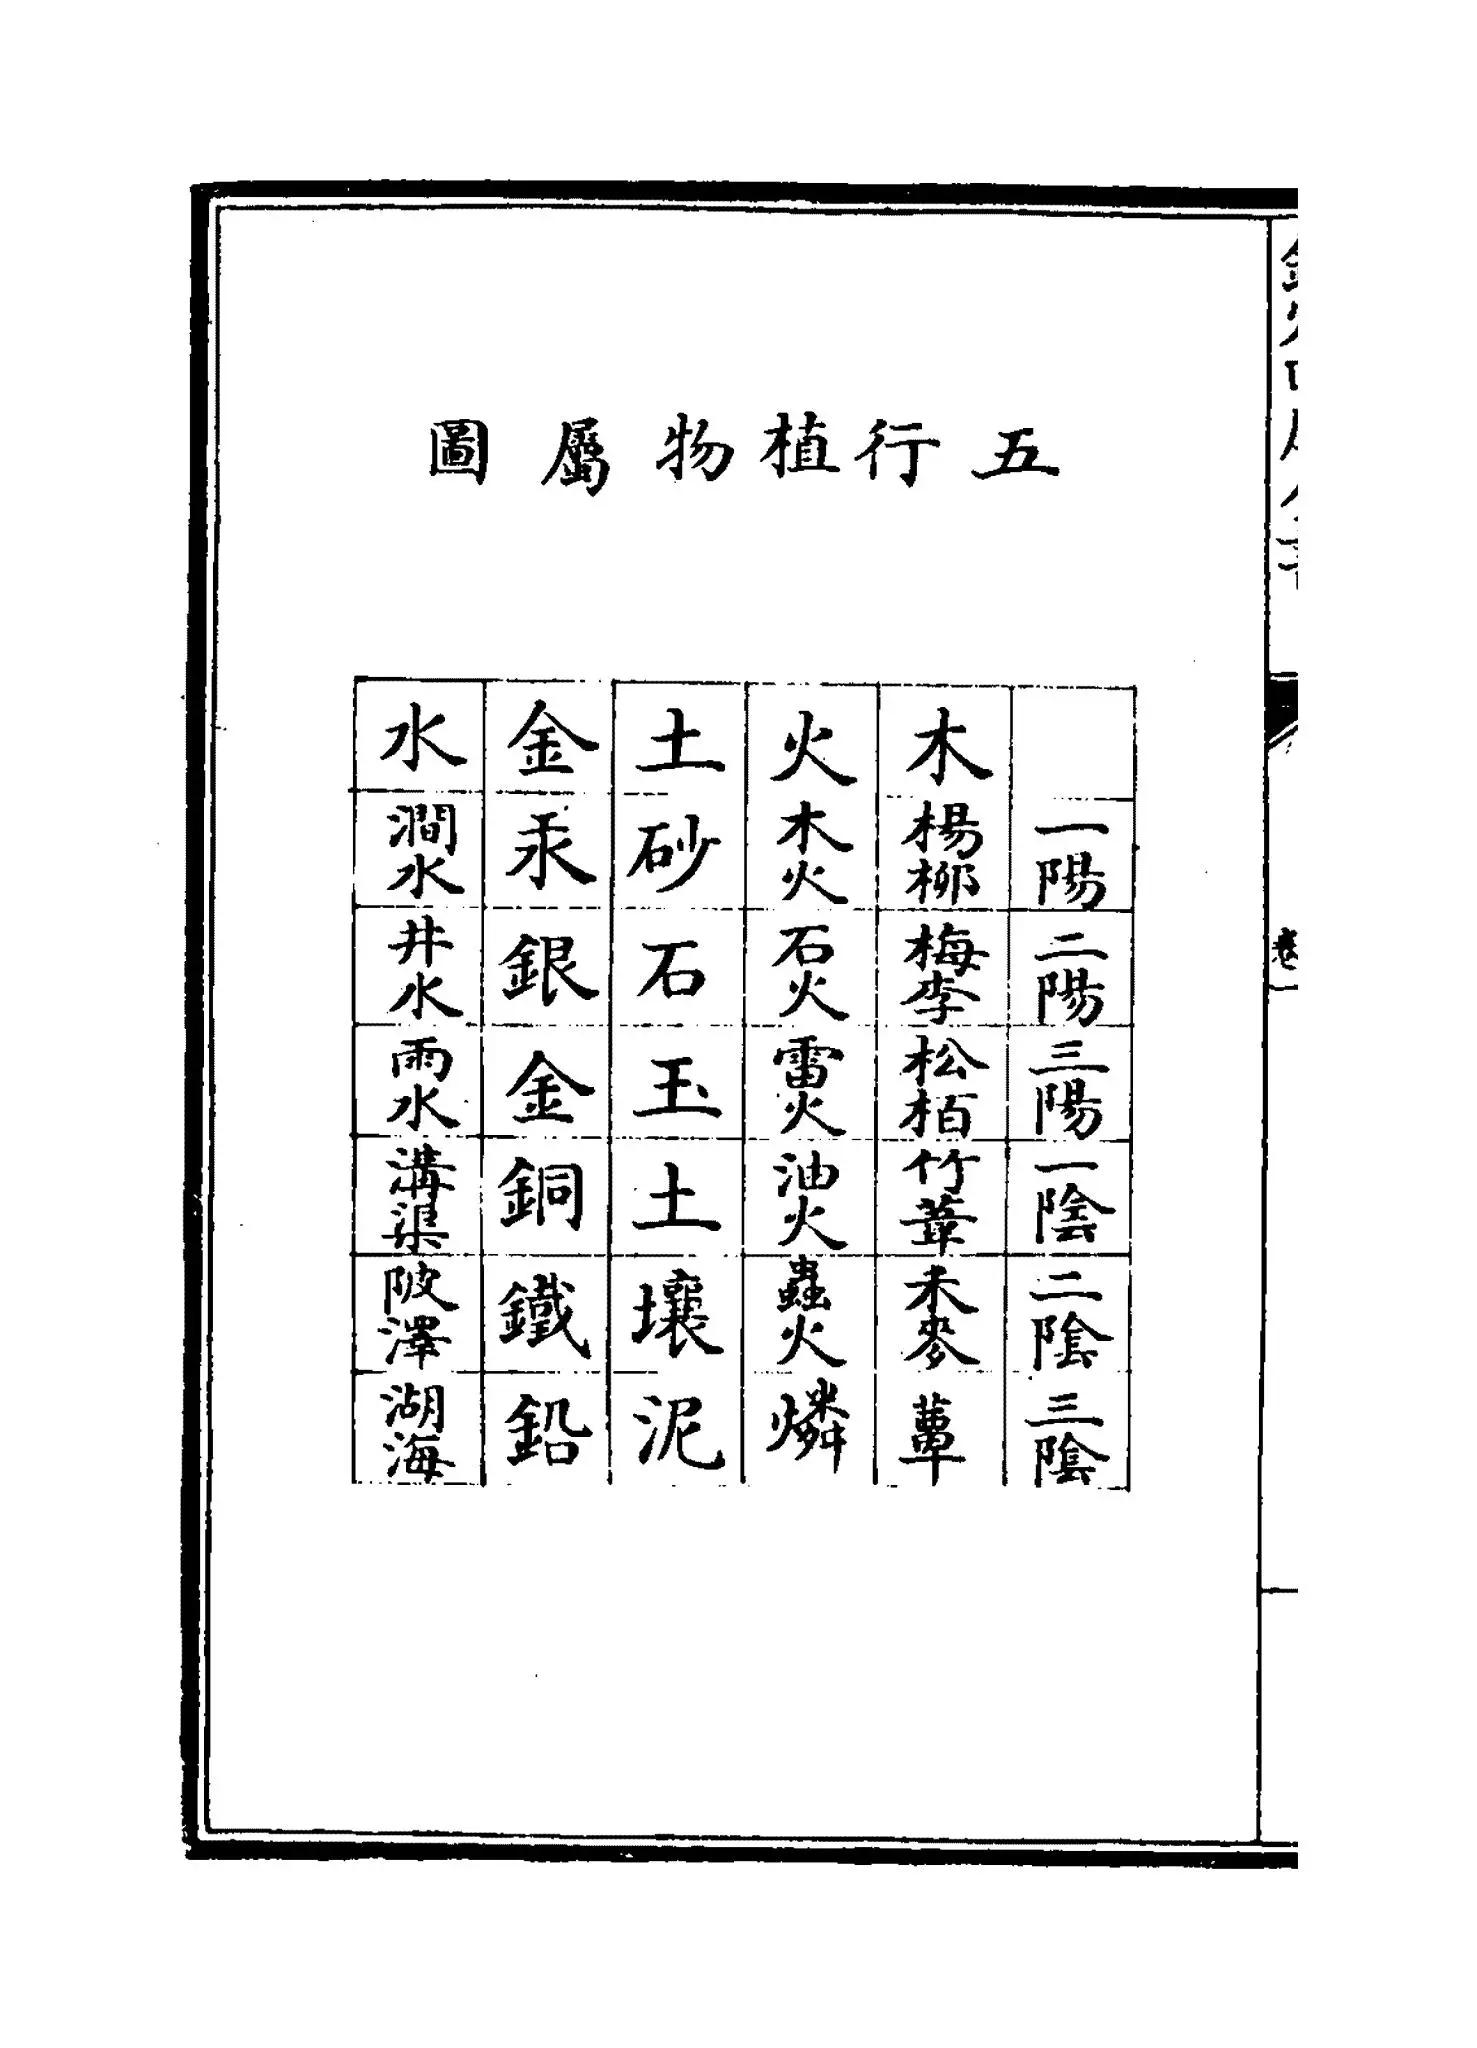 五行植物屬圖
一陽 二陽 三陽 一陰 二陰 三陰
木 楊柳 梅李 松栢 竹葦 禾麥 蕈
火 木火 石火 雷火 油火 蟲火 燐
土 砂 石 玉 土 壤 泥
金 汞 銀 金 銅 鐵 鉛
水 澗水 井水 雨水 溝渠 陂澤 湖海